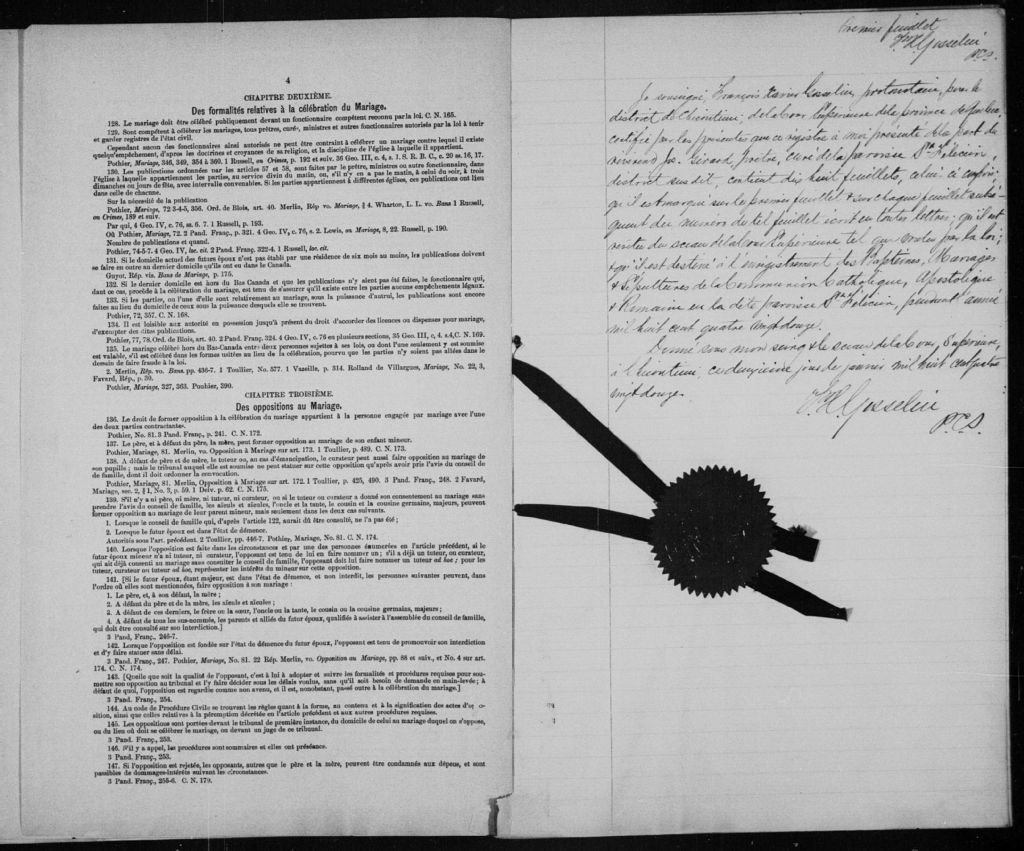 4
CHAPITRE DEUXIÈME.
Des formalités relatives à la célébration du Mariage.
128. Le mariage doit être célébré publiquement devant un fonctionnaire compétent reconnu par la loi. C. N. 165.
129. Sont compétents à célébrer les mariages, tous prêtres, curés, ministres et autres fonctionnaires autorisés par la loi à tenir
et garder registres de l'état civil.
Cependant aucun des fonctionnaires ainsi autorisés ne peut être contraint à célébrer un mariage contre lequel il existe
quelqu'empêchement, d'après les doctrines et croyances de sa religion, et la discipline de l'église à laquelle il appartient.
Pothier, Mariage, 346, 349, 354 à 360. 1 Russell, on Crimes, p. 192 et suiv. 36 Geo. III, c. 4, s. 1. S. R. B. C., c. 20 ss. 16, 17.
130. Les publications ordonnées par les articles 57 et 58, sont faites par le prêtre, ministre ou autre fonctionnaire, dans
l'église à laquelle appartiennent les parties, au service divin du matin, ou, s'il n'y en a pas le matin, à celui du soir, à trois
dimanches ou jours de fête, avec intervalle convenables. Si les parties appartiennent à différentes églises, ces publications ont lieu
dans celle de chacune.
Sur la nécessité de la publication
Pothier, Mariage, 72 3-4-5, 356. Ord. de Blois, art. 40. Merlin, Rép vo. Mariage, § 4. Wharton, L. L. vo. Bans 1 Russell,
on Crimes, 189 et suiv.
Par qui, 4 Geo. IV, c. 76, ss. 6. 7. 1 Russell, p. 193.
Où Pothier, Mariage, 72. 2 Pand. Franç., p. 321. 4 Geo. IV, c. 76, s. 2. Lewis, on Mariage, 8, 22. Russell, p. 190.
Nombre de publications et quand.
Pothier, 74-5-7. 4 Geo. IV, loc. cit. 2 Pand. Franç. 322-4. 1 Russell, loc. cit.
131. Si le domicile actuel des futurs époux n'est pas établi par une résidence de six mois au moins, les publications doivent
se faire en outre au dernier domicile qu'ils ont eu dans le Canada.
Guyot, Rép. vis. Bans de Mariage, p. 175.
132. Si le dernier domicile est hors du Bas Canada et que les publications n'y aient pas été faites, le fonctionnaire qui,
dans ce cas, procède à la célébration du mariage, est tenu de s'assurer qu'il existe entre les parties aucuns empêchements légaux.
133. Si les parties, ou l'une d'elle sont relativement au mariage, sous la puissance d'autrui, les publications sont encore
faites au lieu du domicile de ceux sous la puissance desquels elle se trouvent.
Pothier, 72, 357. C. N. 168.
134. Il est loisible aux autorité en possession jusqu'à présent du droit d'accorder des licences ou dispenses pour mariage,
d'exempter des dites publications.
Pothier, 77, 78. Ord. de Blois, art. 40. 2 Pand. Franç. 324. 4 Geo. IV, c. 76 en plusieurs sections, 35 Geo. III, c. 4, s.4, C. N. 169.
135. Le mariage célébré hors du Bas-Canada entre deux personnes sujettes à ses lois, ou dont l'une seulement y est soumise
est valable, s'il est célébré dans les formes usitées au lieu de la célébration, pourvu que les parties n'y soient pas allées dans le
dessein de faire fraude à la loi.
2. Merlin, Rép. vo. Bans, pp. 436-7. 1 Toullier, No. 577. 1 Vazeille, p. 314. Rolland de Villargues, Mariage, No. 22, 3,
Favard, Rép., p. 30.
Pothier, Mariage, 327, 363. Pouhier, 290.
CHAPITRE TROISIÈME.
Des oppositions au Mariage.
136. Le droit de former opposition à la célébration du mariage appartient à la personne engagée par mariage avec l'une
des deux parties contractantes.
Pothier, No. 81. 3 Pand. Franç., p. 241. C. N. 172.
137. Le père, et à défaut du père, la mère, peut former opposition au mariage de son enfant mineur.
Pothier, Mariage, 81. Merlin, vo. Opposition à Mariage sur art. 173. 1 Toullier, p. 489. C. N. 173.
138. A défaut de père et de mère, le tuteur ou, au cas d'émancipation, le curateur peut aussi faire opposition au mariage de
son pupille ; mais le tribunal auquel elle est soumise ne peut statuer sur cette opposition qu'après avoir pris l'avis du conseil de
de famille, dont il doit ordonner la convocation.
Pothier, Mariage, 81. Merlin, Opposition à Mariage sur art. 172. 1 Toullier, p. 425, 490. 3 Pand. Franç., 248. 2 Favard,
Mariage, sec. 2, § 1, No. 5, p. 59. 1 Delv. p. 62. C. N. 175.
139. S'il n'y a ni père, ni mère, ni tuteur, ni curateur, ou si le tuteur ou curateur a donné son consentement au mariage sans
prendre l'avis du conseil de famille, les aïeuls et aïeules, l'oncle et la tante, le cousin et la cousine germains, majeurs, peuvent
former opposition au mariage de leur parent mineur, mais seulement dans les deux cas suivants.
1. Lorsque le conseil de famille qui, d'après l'article 122, aurait dû être consulté, ne l'a pas été ;
2. Lorsque le futur époux est dans l'état de démence.
Autorités sous l'art. précédent. 2 Toullier, pp. 446-7. Pothier, Mariage, No. 81. C. N. 174.
140. Lorsque l'opposition est faite dans les circonstances et par une des personnes énumérées en l'article précédent, si le
futur époux mineur n'a ni tuteur, ni curateur, l'opposant est tenu de lui en faire nommer un ; s'il a déjà un tuteur, ou curateur,
qui ait déjà consenti au mariage sans consulter le conseil de famille, l'opposant doit lui faire nommer un tuteur ad hoc ; pour les
tuteur, curateur ou tuteur ad hoc, représenter les intérêts du mineur sur cette opposition.
141. [Si le futur époux, étant majeur, est dans l'état de démence, et non interdit, les personnes suivantes peuvent, dans
l'ordre où elles sont mentionnées, faire opposition à son mariage :
1. Le père, et, à son défaut, la mère ;
2. A défaut du père et de la mère, les aïeuls et aïeules ;
3. A défaut de ces derniers, le frère ou la sœur, l'oncle ou la tante, le cousin ou la cousine germains, majeurs ;
4. A défaut de tous les sus-nommés, les parents et alliés du futur époux, qualifiés à assister à l'assemblée du conseil de famille,
qui doit être consulté sur son interdiction.]
3 Pand, Franç., 246-7.
142. Lorsque l'opposition est fondée sur l'état de démence du futur époux, l'opposant est tenu de promouvoir son interdiction
et d'y faire statuer sans délai.
3 Pand. Franç., 247. Pothier, Mariage, No. 81. 22 Rép. Merlin, vo. Opposition au Mariage, pp. 88 et suiv., et No. 4 sur art.
174. C. N. 174.
143. [Quelle que soit la qualité de l'opposant, c'est à lui à adopter et suivre les formalités et procédures requises pour sou-
mettre son opposition au tribunal et l'y faire décider sous les délais voulus, sans qu'il soit besoin de demande en main-levée ; à
défaut de quoi, l'opposition est regardée comme non avenu, et il est, nonobstant, passé outre à la célébration du mariage.]
3 Pand. Franç., 254.
144. Au code de Procédure Civile se trouvent les règles quant à la forme, au contenu et à la signification des actes d'op o-
sition, ainsi que celles relatives à la péremption décrétée en l'article précédent et aux autres procédures requises.
145. Les oppositions sont portées devant le tribunal de première instance, du domicile de celui au mariage duquel on s'oppose,
ou du lieu où doit se célébrer le mariage, ou devant un juge de ce tribunal.
3 Pand. Franç., 253.
146. S'il y a appel, les procédures sont sommaires et elles ont préséance.
3 Pand. Franç., 253.
147. Si l'opposition est rejetée, les opposants, autres que le père et la mère, peuvent être condamnés aux dépens, et sont
passibles de dommages-intérêts suivant les circonstances.
3 Pand. Franç., 255-6. C. N. 179.
Premier feuillet
F.X. Gosselin
P.C.S.
Je soussigné, François Xavier Gosselin, protonotaire, pour le
district de Chicoutimi, de la Cour Supérieure de la province de Québec,
certifie par les présentes que ce registre à moi présenté de la part du
révérend Jos. Girard prêtre, curé de la paroisse St Félicien,
district susdit, contient dix huit feuillets, celui-ci compris;
qu'il est marqué sur le premier feuillet & sur chaque feuillet subsé-
quent du numéro de tel feuillet écrit en toutes lettres; qu'il est
revêtu du sceau de la Cour Supérieure tel que voulu par la loi;
& qu'il est destiné à l'enregistrement des Baptêmes, Mariages
& Sépultures de la Communion Catholique, Apostolique
& Romaine en la dite paroisse St Félicien, pendant l'année
mil huit cent quatre vingt douze.
Donné sous mon seing & le sceau de la Cour Supérieure,
à Chicoutimi, ce deuxième jour de janvier mil huit cent quatre
vingt douze.
F.X. Gosselin
P.C.S.